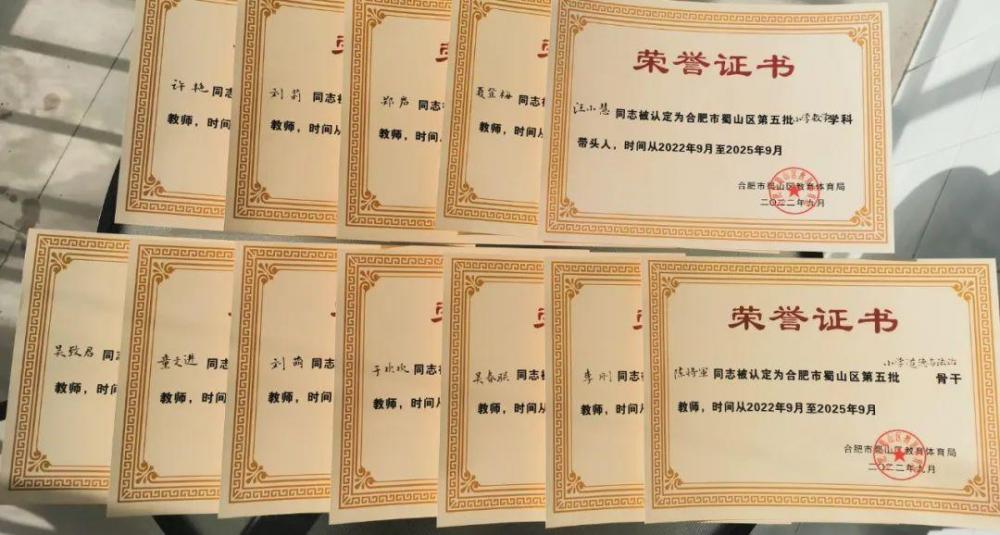 许艳同
教师，时
刘莉同志
教师，时间从
郑启同志
教师，时间从
夏宜梅同志被
教师，时间从20
荣誉证书
汪小慧同志被认定为合肥市蜀山区第五批小学数学学科
带头人，时间从2022年9月至2025年9月
合肥市蜀山区教育体育局
二〇二二年九月
吴致君同
教师，时间
童文进同志
教师，时间从
刘萌同志
教师，时间从
于欢欢同志
教师，时间从2
吴春联同志被
教师，时间从2
李刚同志
教师，时间从2
荣誉证书
陈特军同志被认定为合肥市蜀山区第五批小学道德与法治骨干
教师，时间从2022年9月至2025年9月
合肥市蜀山区教育体育局
二〇二二年九月